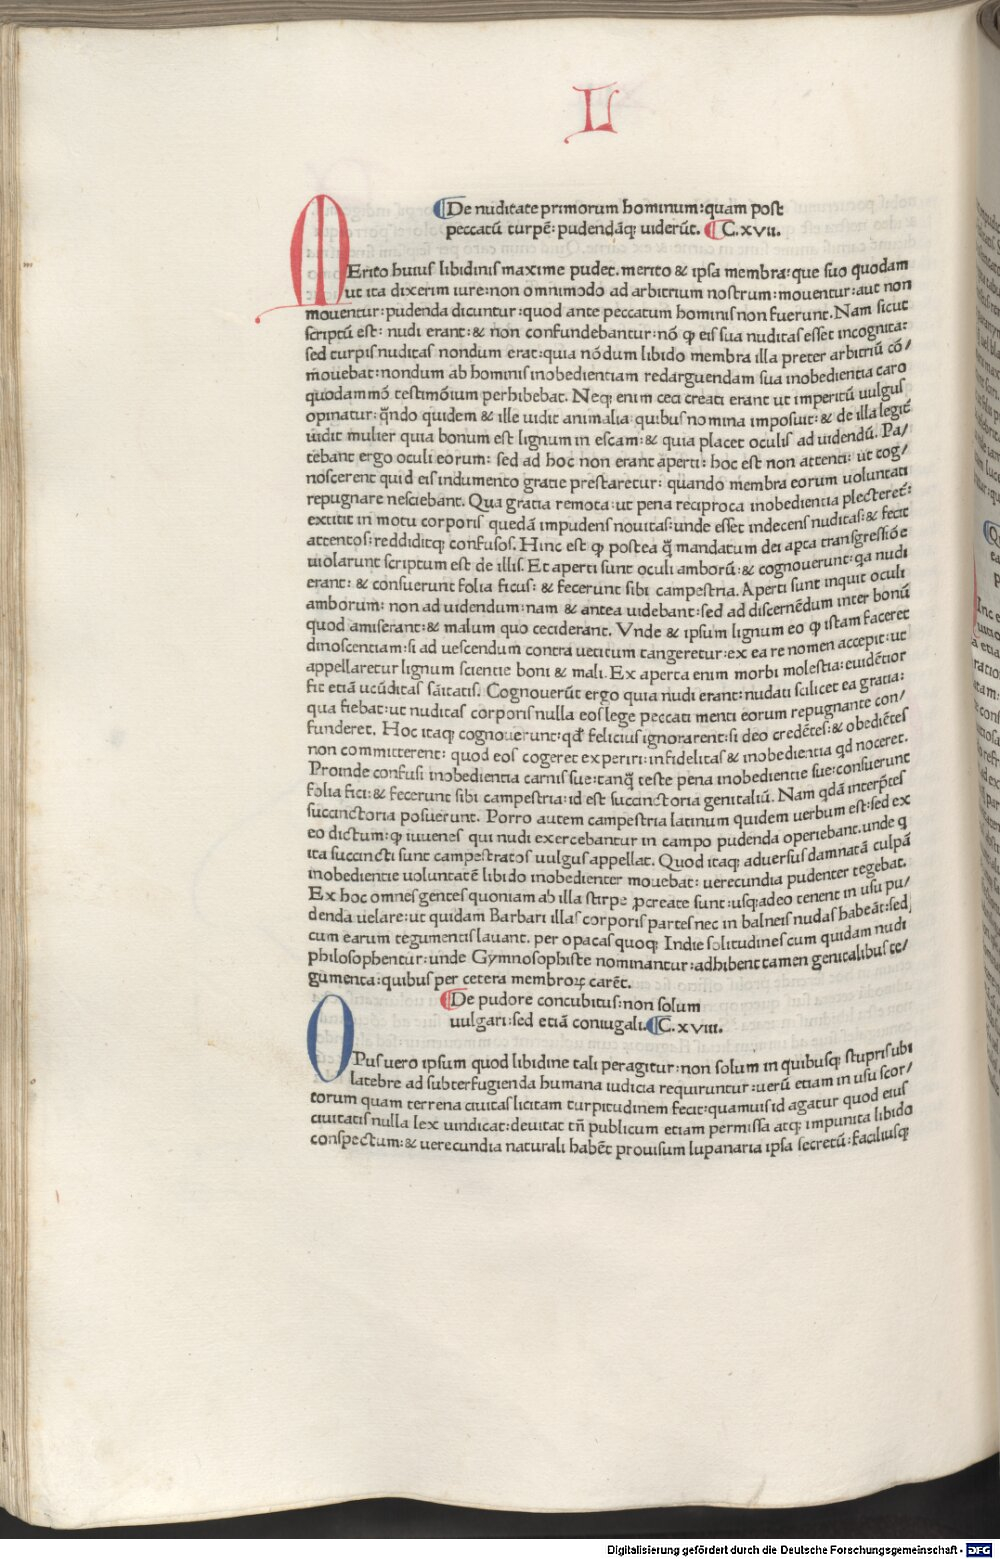 L
De nuditate primorum hominum: quam post
peccatū turpē: pudendāq; uiderūt. C. xvii.
MErito huius libidinis maxime pudet. merito & ipsa membra: que suo quodam
ut ita dixerim iure: non omnimodo ad arbitrium nostrum: mouentur: aut non
mouentur: pudenda dicuntur: quod ante peccatum hominis non fuerunt. Nam sicut
scriptū est: nudi erant: & non confundebantur: nō ꝙ eis sua nuditas esset incognita:
sed turpis nuditas nondum erat: quia nōdum libido membra illa preter arbitriū cō/
mouebat: nondum ab hominis inobedientiam redarguendam sua inobedientia caro
quodammō testimōium perhibebat. Neq; enim ceci creati erant ut imperitū uulgus
opinatur: q̄ndo quidem & ille uidit animalia quibus nomina imposuit: & de illa legit̄
uidit mulier quia bonum est lignum in escam: & quia placet oculis ad uidendū. Pa/
tebant ergo oculi eorum: sed ad hoc non erant aperti: hoc est non attenti: ut cog/
noscerent quid eis indumento gratie prestaretur: quando membra eorum uoluntati
repugnare nesciebant. Qua gratia remota: ut pena reciproca inobedientia plecteret̄:
extitit in motu corporis quedā impudens nouitas: unde esset indecens nuditas: & fecit
attentos: reddiditq; confusos. Hinc est ꝙ postea q̄ mandatum dei apta transgressiōe
uiolarunt scriptum est de illis. Et aperti sunt oculi amborū: & cognouerunt: qa nudi
erant: & consuerunt folia ficus: & fecerunt sibi campestria. Aperti sunt inquit oculi
amborum: non ad uidendum: nam & antea uidebant: sed ad discernēdum inter bonū
quod amiserant: & malum quo ceciderant. Vnde & ipsum lignum eo ꝙ istam faceret
dinoscentiam: si ad uescendum contra uetitum tangeretur: ex ea re nomen accepit: ut
appellaretur lignum scientie boni & mali. Ex aperta enim morbi molestia: euidētior
fit etiā iucūditas saītatis. Cognouerūt ergo quia nudi erant: nudati scilicet ea gratia:
qua fiebat: ut nuditas corporis nulla eos lege peccati menti eorum repugnante con/
funderet. Hoc itaq; cognouerunt: qđ felicius ignorarent: si deo credētes: & obediētes
non committerent: quod eos cogeret experiri: infidelitas & inobedientia qd noceret.
Proinde confusi inobedientia carnis sue: tanq̄ teste pena inobedientie sue: consuerunt
folia fici: & fecerunt sibi campestria: id est succinctoria genitaliū. Nam qdā interp̄tes
succinctoria posuerunt. Porro autem campestria latinum quidem uerbum est: sed ex
eo dictum: ꝙ iuuenes qui nudi exercebantur in campo pudenda operiebant. unde q
ita succincti sunt campestratos uulgus appellat. Quod itaq; aduersus damnatā culpā
inobedientie uoluntatē libido inobedienter mouebat: uerecundia pudenter tegebat.
Ex hoc omnes gentes quoniam ab illa stirpe ꝓcreate sunt: usq; adeo tenent in usu pu/
denda uelare: ut quidam Barbari illas corporis partes nec in balneis nudas habeāt: sed
cum earum tegumentis lauant. per opacas quoq; Indie solitudines cum quidam nudi
philosophentur: unde Gymnosophiste nominantur: adhibent tamen genitalibus te/
gumenta: quibus per cetera membroꝝ carēt.
De pudore concubitus: non solum
uulgari: sed etiā coniugali. C. xviii.
OPus uero ipsum quod libidine tali peragitur: non solum in quibusq; stupris ubi
latebre ad subterfugienda humana iudicia requiruntur: uerū etiam in usu scor/
torum quam terrena ciuitas licitam turpitudinem fecit: quamuis id agatur quod eius
ciuitatis nulla lex uindicat: deuitat tn̄ publicum etiam permissa atq; impunita libido
conspectum: & uerecundia naturali habēt prouisum lupanaria ipsa secretū: faciliusq;
Digitalisierung gefördert durch die Deutsche Forschungsgemeinschaft - DFG